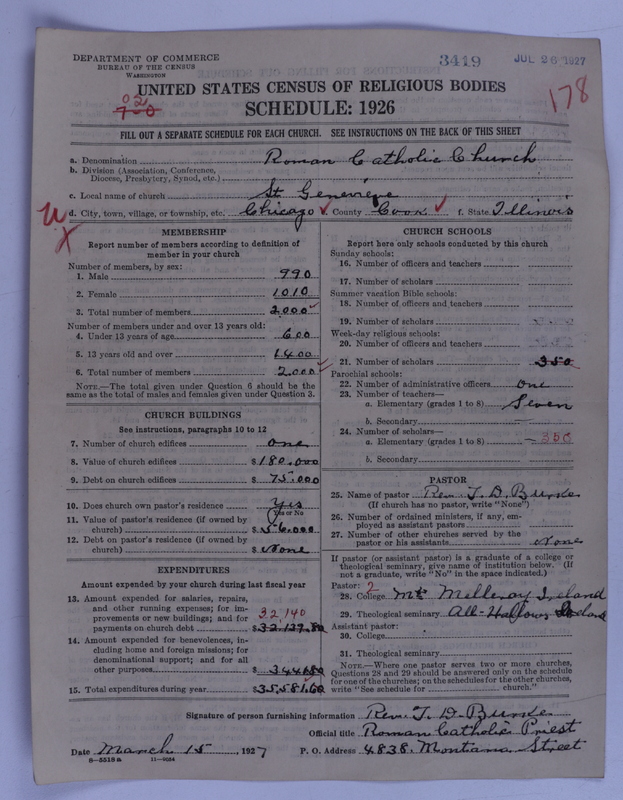 DEPARTMENT OF COMMERCE
BUREAU OF THE CENSUS
WASHINGTON
3419
JUL 26 1927
UNITED STATES CENSUS OF RELIGIOUS BODIES
SCHEDULE: 1926
02
7-0
178
FILL OUT A SEPARATE SCHEDULE FOR EACH CHURCH. SEE INSTRUCTIONS ON THE BACK OF THIS SHEET
a. Denomination Roman Catholic Church
b. Division (Association, Conference,
Diocese, Presbytery, Synod, etc.)
c. Local name of church St Genevieve
d. City, town, village, or township, etc. Chicago County Cook f. State Illinois
MEMBERSHIP
Report number of members according to definition of
member in your church
Number of members, by sex:
1. Male 990
2. Female 1010
3. Total number of members 2000
Number of members under and over 13 years old:
4. Under 13 years of age 600
5. 13 years old and over 1400
6. Total number of members 2.000
NOTE.—The total given under Question 6 should be the
same as the total of males and females given under Question 3.
CHURCH BUILDINGS
See instructions, paragraphs 10 to 12
7. Number of church edifices one
8. Value of church edifices $180.000
9. Debt on church edifices $75.000
10. Does church own pastor's residence Yes
(Yes or No
11. Value of pastor's residence (if owned by
church) $56.000
12. Debt on pastor's residence (if owned by
church) $None
EXPENDITURES
Amount expended by your church during last fiscal year
13. Amount expended for salaries, repairs,
and other running expenses; for im-
provements or new buildings; and for
payments on church debt 32,140
$32,139.80
14. Amount expended for benevolences, in-
cluding home and foreign missions; for
denominational support; and for all
other purposes $3441.80
15. Total expenditures during year $35,581.60
CHURCH SCHOOLS
Report here only schools conducted by this church
Sunday schools:
16. Number of officers and teachers
17. Number of scholars
Summer vacation Bible schools:
18. Number of officers and teachers
19. Number of scholars
Week-day religious schools:
20. Number of officers and teachers
21. Number of scholars 350
Parochial schools:
22. Number of administrative officers one
23. Number of teachers—
a. Elementary (grades 1 to 8) Seven
b. Secondary
24. Number of scholars—
a. Elementary (grades 1 to 8) 350
b. Secondary
PASTOR
25. Name of pastor Rev. T. D. Burke
(If church has no pastor, write "None")
26. Number of ordained ministers, if any, em-
ployed as assistant pastors
27. Number of other churches served by the
pastor or his assistants None
If pastor (or assistant pastor) is a graduate of a college or
theological seminary, give name of institution below. (If
not a graduate, write "No" in the space indicated.)
Pastor: 2
28. College Mt Melleray Ireland
29. Theological seminary All-Hallows Ireland
Assistant pastor:
30. College
31. Theological seminary
NOTE.—Where one pastor serves two or more churches,
Questions 28 and 29 should be answered only on the schedule
for one of the churches; on the schedules for the other churches,
write "See schedule for church."
Signature of person furnishing information Rev. T. D. Burke
Official title Roman Catholic Priest
Date March 15, 1927 P. O. Address 4838. Montana Street
8—5518a 11—9034